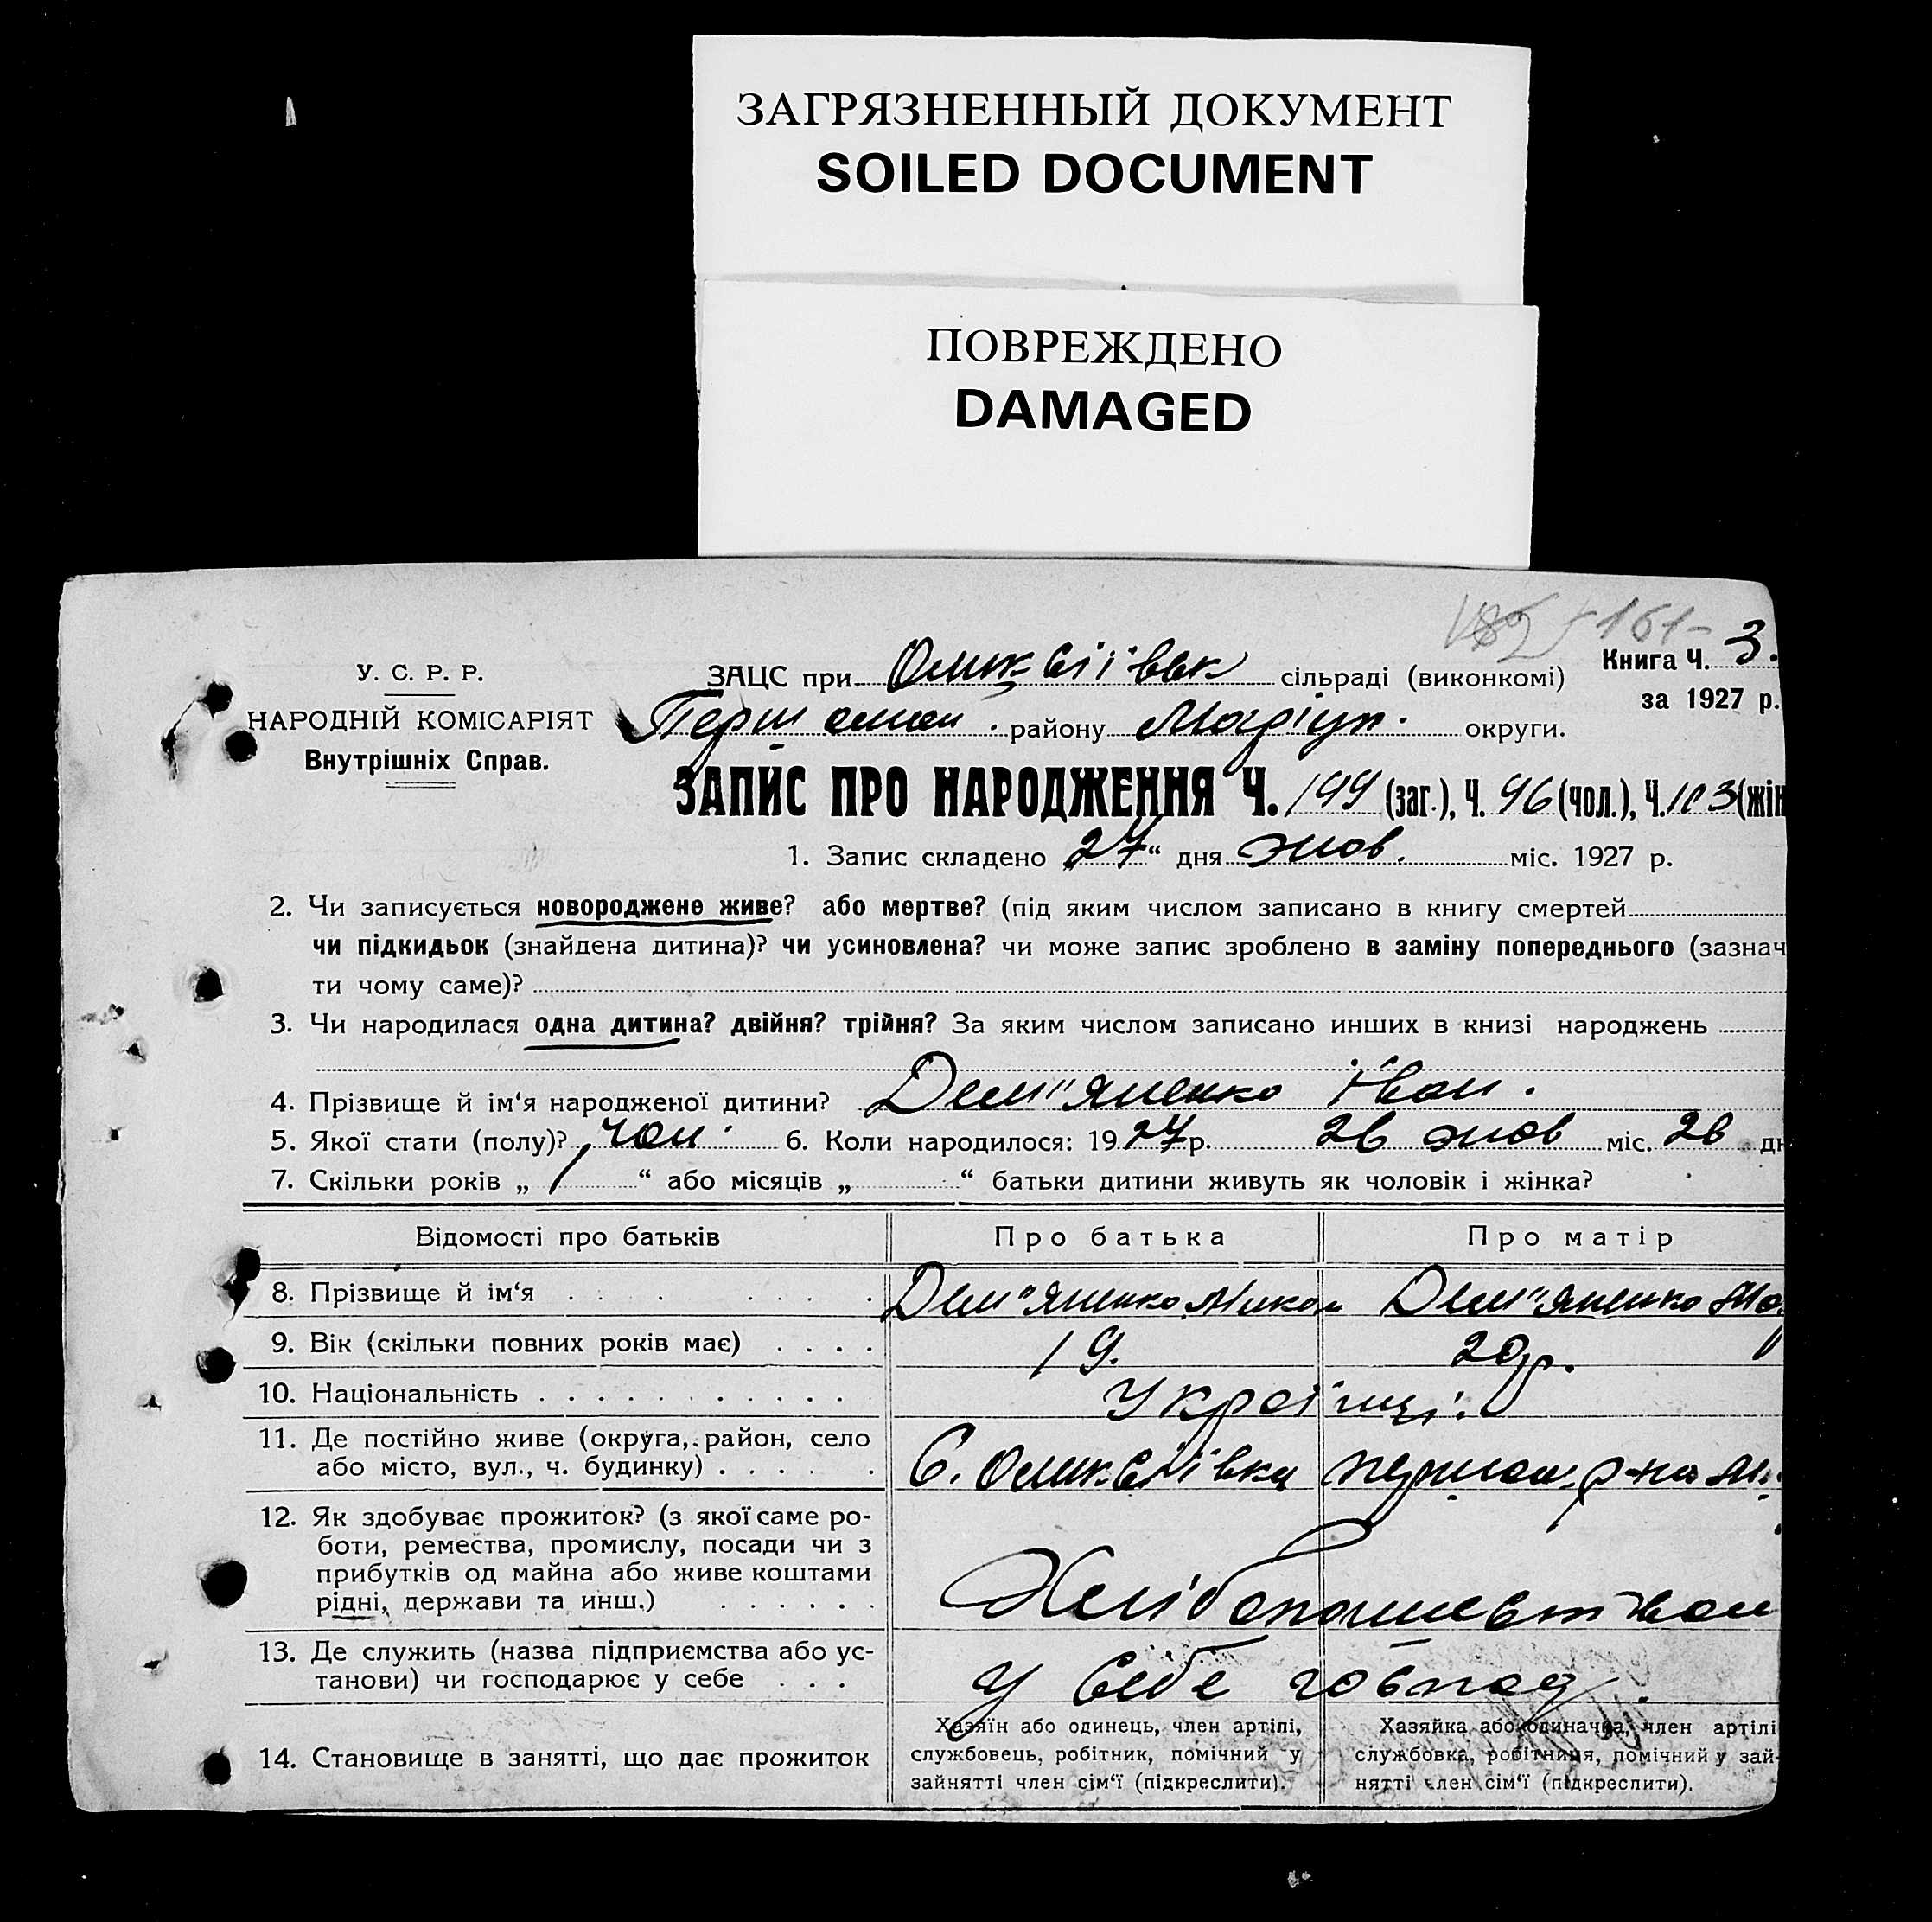 ЗАГРЯЗНЕННЫЙ ДОКУМЕНТ
SOILED DOCUMENT
ПОВРЕЖДЕНО
DAMAGED
161-
У. С. Р. Р.
НАРОДНІЙ КОМІСАРІЯТ
Внутрішніх Справ.
Книга Ч. 3.
за 1927 р.
ЗАЦС при сільраді (виконкомі)
району Маріуп. округи.
ЗАПИС ПРО НАРОДЖЕННЯ Ч. 199 (заг.), Ч. 96 (чол.), Ч. 103 (жін
1. Запис складено 27“ дня жов. міс. 1927 р.
2. Чи записується новороджене живе? або мертве? (під яким числом записано в книгу смертей
чи підкидьок (знайдена дитина)? чи усиновлена? чи може запис зроблено в заміну попереднього (зазнач
ти чому саме)?
3. Чи народилася одна дитина? двійня? трійня? За яким числом записано инших в книзі народжень
4. Прізвище й ім‘я народженої дитини? Дем"яненко Іван.
5. Якої стати (полу)? чол. 6. Коли народилося: 1927р. 26 жов міс. 26 дн
7. Скільки років „ 1 “ або місяців „ “ батьки дитини живуть як чоловік і жінка?
Відомості про батьків Про батька Про матір
8. Прізвище й ім‘я Дем"яненко Микол Дем"яненко
9. Вік (скільки повних років має) 19. 20р.
10. Національність Українці.
11. Де постійно живе (округа, район, село
або місто, вул., ч. будинку) С. р-на
12. Як здобуває прожиток? (з якої саме ро-
боти, ремества, промислу, посади чи з
прибутків од майна або живе коштами
рідні, держави та инш.) Хлібопашеством
13. Де служить (назва підприємства або ус-
танови) чи господарює у себе у себе господ.
14. Становище в занятті, що дає прожиток
Хазяїн або одинець, член артілі,
службовець, робітник, помічний у
зайнятті член сім‘ї (підкреслити).
Хазяйка або одиначка, член артілі
службовка, робітниця, помічний у зай-
нятті член сім‘ї (підкреслити).